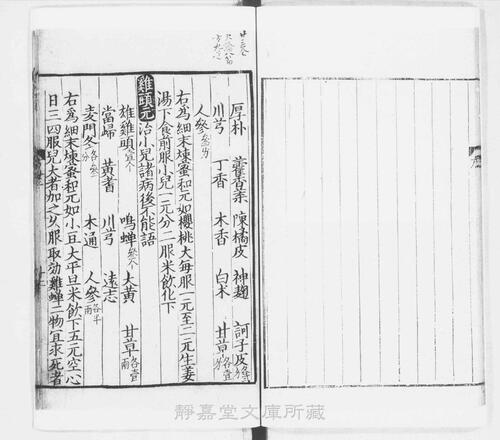 厚朴 藿香葉 陳橘皮 神麴 訶子皮
川芎 丁香 木香 白朮 甘草
人參
右爲細末煉蜜和元如櫻桃大每服一元至二元生姜
湯下食前服小兒一元分二服米飲化下
雞頭元 治小兒諸病後不能語
雄雞頭壹个 鳴蟬參个 大黃 甘草各壹兩
當歸 黃耆 川芎 遠志
麥門冬 木通 人參各半兩
右爲細末煉蜜和元如小豆大平旦米飲下五元空心
日三四服兒大者加之久服取効雞蟬二物宜求死者
靜嘉堂文庫所藏